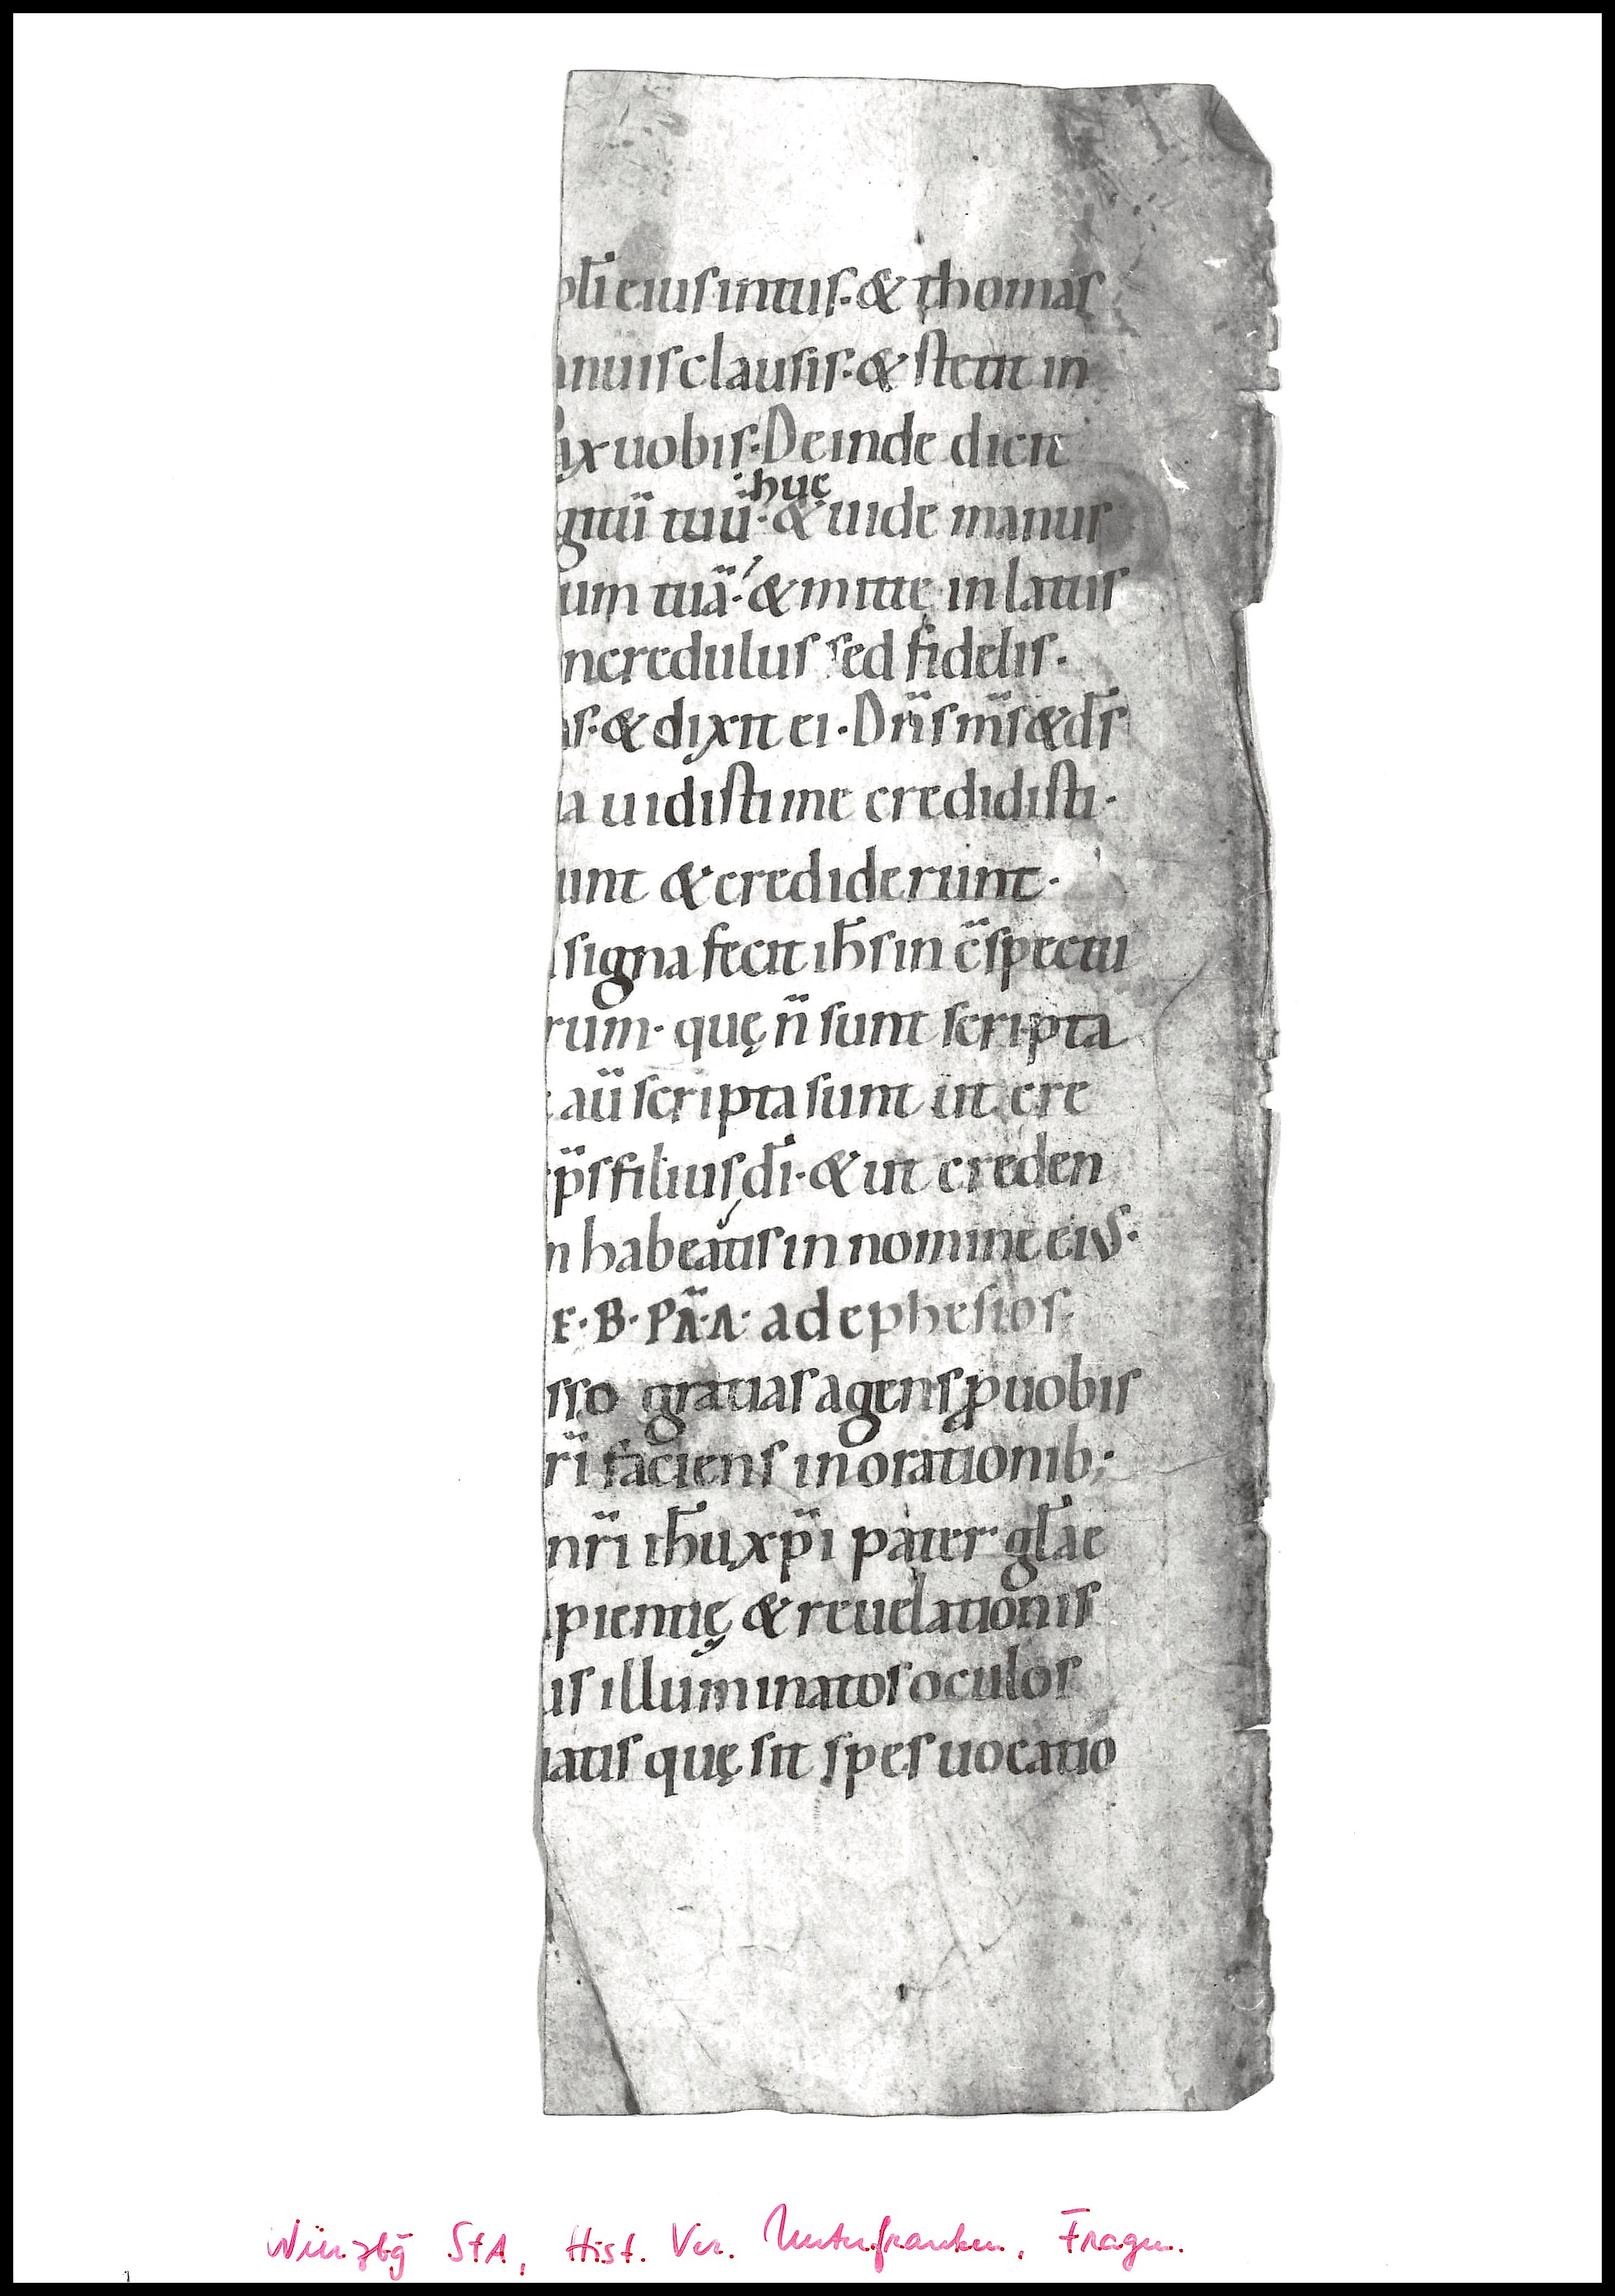 pl̄i eius intus· & thomas
anuis clausis· & stetit in
ax uobis· Deinde dicit
huc
gitū tuū· & uide manus
um tuā· & mitte in latus
ncredulus sed fidelis·
as· & dixit ei· Dn̄s m̄s & d̄s
ia uidisti me credidisti·
unt & crediderunt·
signa fecit ih̄s in c̄spectu
rum· quę n̄ sunt scripta
aū scripta sunt ut cre
p̄s filius d̄i· & ut creden
m habeatis in nomine eius·
E· B· PĀ·A· ad ephesios·
sso gratias agens ꝓ uobis
ri̅ faciens in orationib;
nr̄i ih̄u xp̄i pater gl̄ae
pientię & reuelationis
is illuminatos oculos
iatis quę sit spes uocatio
Würzbg StA, Hist. Ver. Unterfranken, Fragm.